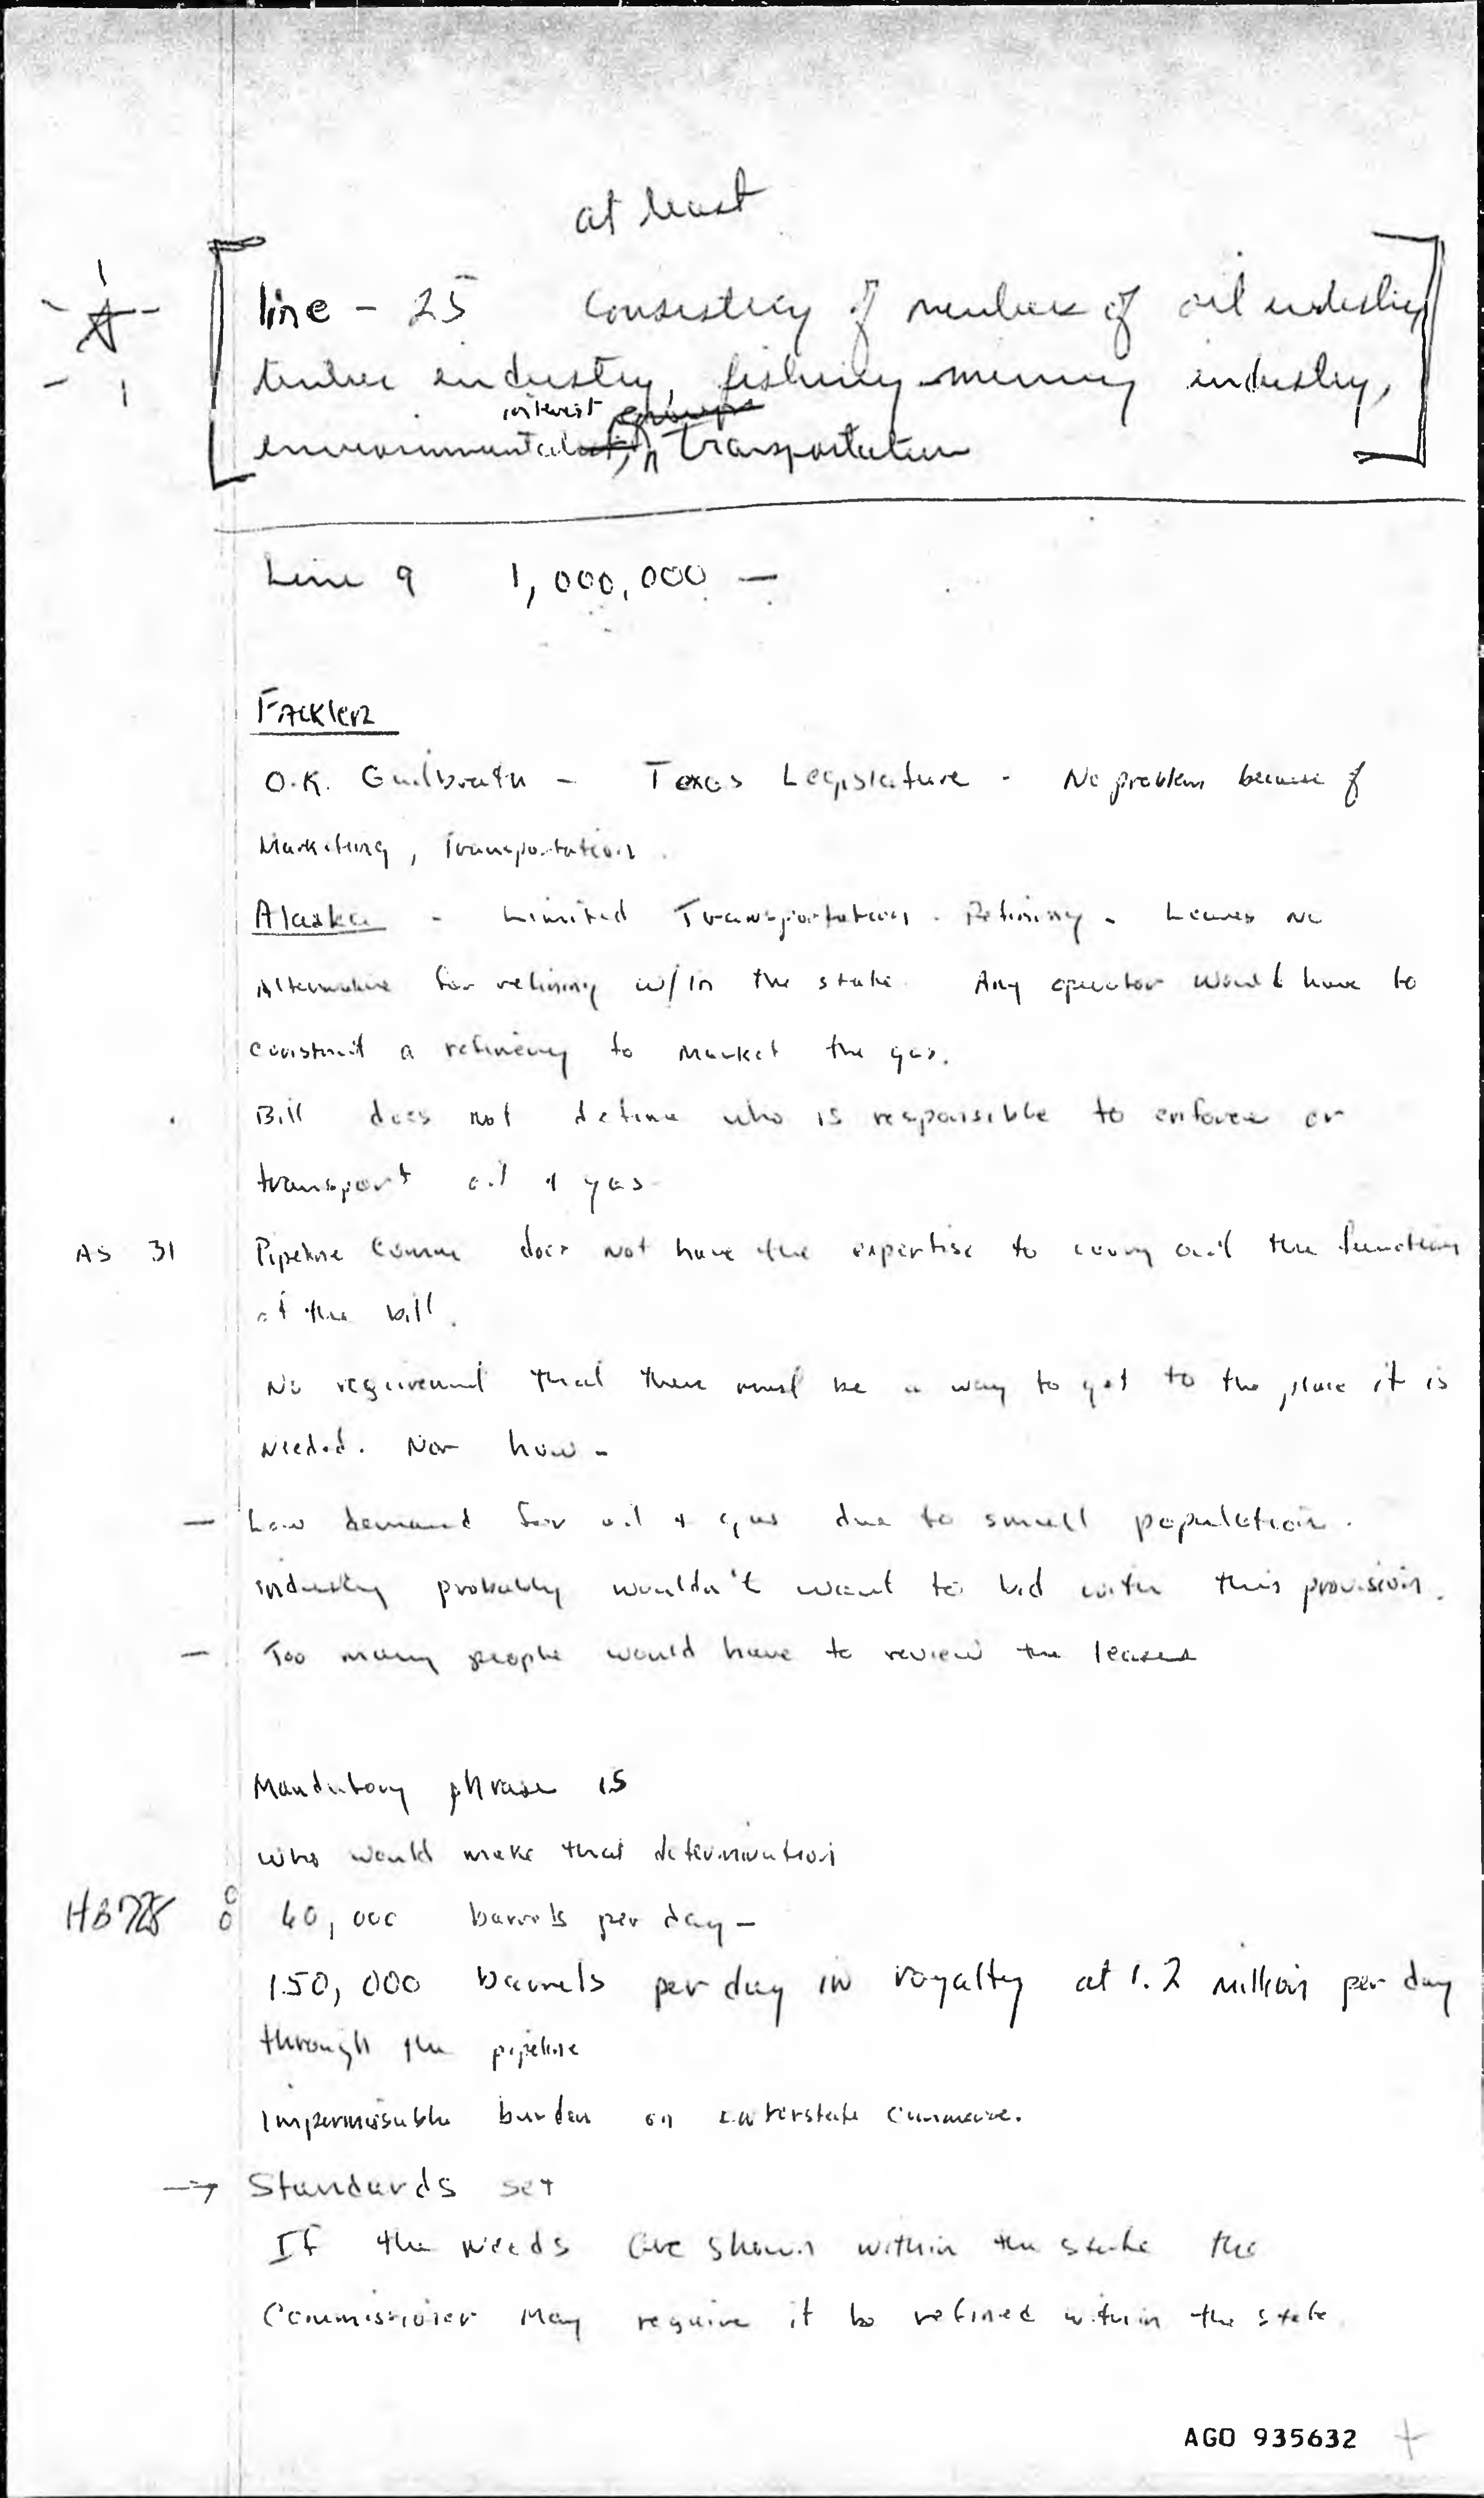 at least
line - 25 consisting of members of oil industry
timber industry, fishing mining industry,
interest groups
environmental, transportation
Line 9 1,000,000 —
Fackler
O.K. - Texas Legislature - No problem because of
Marketing, Transportation
Alaska - Limited Transportation - Refining - Leaves no
Alternative for refining w/in the state. Any operator would have to
construct a refinery to market the gas.
Bill does not define who is responsible to enforce or
transport oil & gas
AS 31 Pipeline Comm does not have the expertise to carry out the function
of the bill.
No requirement that there must be a way to get to the place it is
needed. Nor how -
— Low demand for oil & gas due to small population.
industry probably wouldn't want to bid with this provision.
— Too many people would have to review the leases
Mandatory phrase is
who would make that determination
HB 40,000 barrels per day —
150,000 barrels per day in royalty at 1.2 million per day
through the pipeline
Impermissable burden on interstate commerce.
→ Standards set
If the needs are shown within the state the
Commissioner may require it be refined within the state
AGO 935632